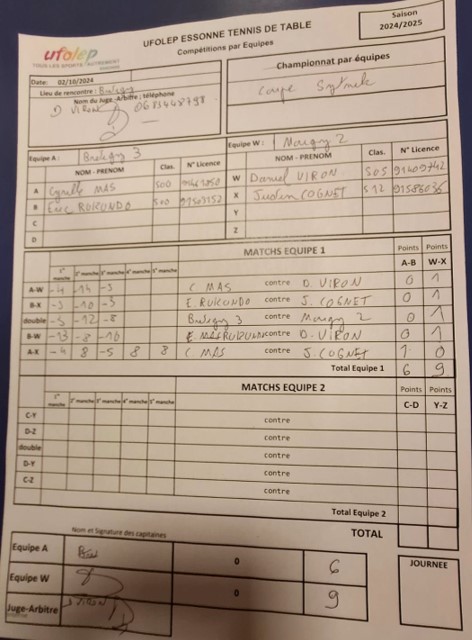 UFOLEP ESSONNE TENNIS DE TABLE
Compétitions par Equipes
Saison
2024/2025
ufolep
TOUS LES SPORTS AUTREMENT
Championnat par équipes
Date: 02/10/2024
Lieu de rencontre:
Nom du Juge-Arbitre / téléphone
D VIRON
Coupe
Equipe A : 3
Equipe W : 2
NOM - PRENOM Clas. N° Licence
NOM - PRENOM Clas. N° Licence
A Cyrille MAS 500
W Daniel VIRON 505
B Eric RUKUNDO 500
X Justin COGNET 512
C
Y
D
Z
MATCHS EQUIPE 1
Points Points
1° manche 2° manche 3° manche 4° manche 5° manche
A-B W-X
A-W -4 -14 -3 C MAS contre D. VIRON 0 1
B-X -3 -10 -5 E RUKUNDO contre J. COGNET 0 1
double -5 -12 -8 3 contre 2 0 1
B-W -13 -8 -10 contre D. VIRON 0 1
A-X -4 8 -5 8 8 C MAS contre J. COGNET 1 0
Total Equipe 1 6 9
MATCHS EQUIPE 2
Points Points
1° manche 2° manche 3° manche 4° manche 5° manche
C-D Y-Z
C-Y contre
D-Z contre
double contre
D-Y contre
C-Z contre
Total Equipe 2
TOTAL
Nom et Signature des capitaines
Equipe A 0 6
JOURNEE
Equipe W 0 9
Juge-Arbitre